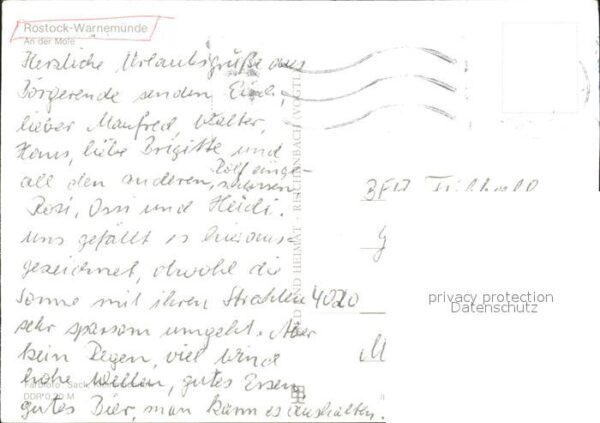 Rostock-Warnemünde
An der Mole
Herzliche Urlaubsgrüße aus
Börgerende senden Euch,
lieber Manfred, Walter,
Hans, liebe Brigitte und
all den anderen, Rolf einge-
schlossen
Rosi, Ossi und Heidi.
Uns gefällt es hier aus-
gezeichnet, obwohl die
Sonne mit ihren Strahlen
sehr sparsam umgeht. Aber
kein Regen, viel Wind
hohe Wellen, gutes Essen,
gutes Bier, man kann es aushalten.
Farbfoto: Sack,
DDR 0,20 M
BILD UND HEIMAT · REICHENBACH (VOGTL
4020
M
privacy protection
Datenschutz